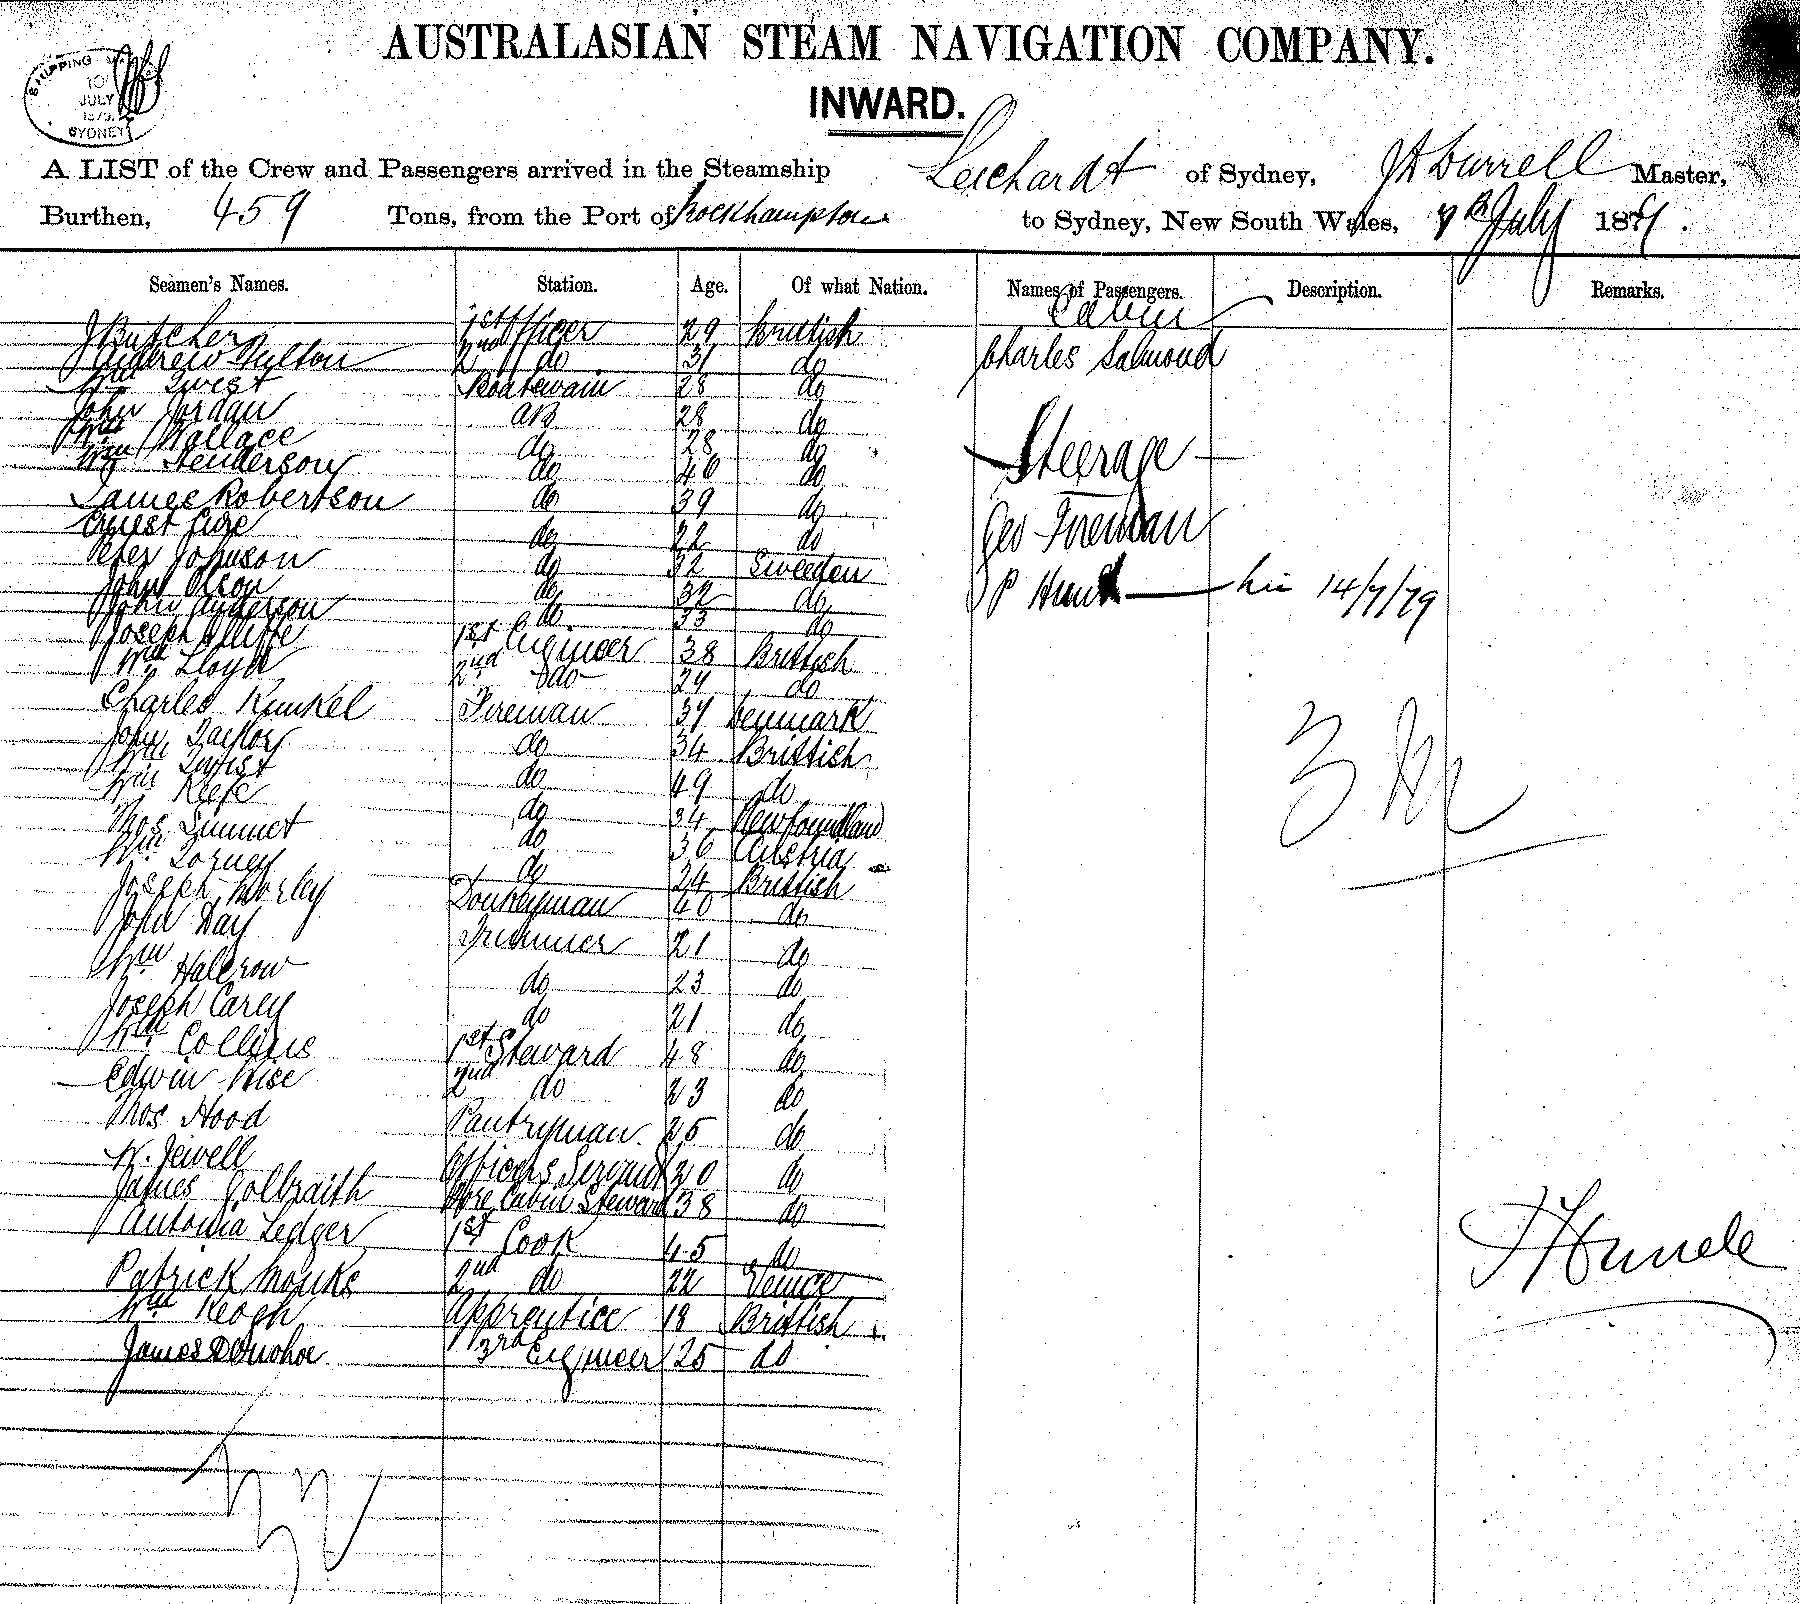 AUSTRALASIAN STEAM NAVIGATION COMPANY.
INWARD.
SHIPPING
10
JULY
1879.
SYDNEY
A LIST of the Crew and Passengers arrived in the Steamship Leichardt of Sydney, Master,
Burthen, 459 Tons, from the Port of Rockhampton to Sydney, New South Wales, July 187
Seamen's Names. Station. Age. Of what Nation. Names of Passengers. Description. Remarks.
Cabin
J Butcher 1st Officer 29 Brittish
Andrew 2nd do 31 do Charles Salmond
Wm Twist Boatswain 28 do
John Jordan AB 28 do
Wm Wallace do 28 do Steerage
Wm Henderson do 40 do
James Robertson do 39 do
do 22 do Geo Fireman
Peter Johnson do 32 Sweeden
John Olson do 32 do P 14/7/79
John Anderson do 33 do
Joseph 1st Engineer 38 Brittish
Wm Lloyd 2nd do 24 do
Charles Kunkel Fireman 37 Denmark
John Taylor do 34 Brittish
Wm Twist do 49 do
Wm Keefe do 34 Newfoundland
Thos do 36 Austria
Wm Torney do 24 Brittish
Joseph Morley Donkeyman 40 do
John Day Trimmer 21 do
Wm Halcrow do 23 do
Joseph Carey do 21 do
Wm Collins 1st Steward 48 do
Edwin Wise 2nd do 23 do
Thos Hood Pantryman 25 do
W. Jewell Officers Servant 20 do
James Golbraith Fore Cabin Steward 38 do
Antonia Ledger 1st Cook 45 do
Patrick Monks 2nd do 22 Venice
Wm Keogh Apprentice 18 Brittish
James Donohoe 3rd Engineer 25 do